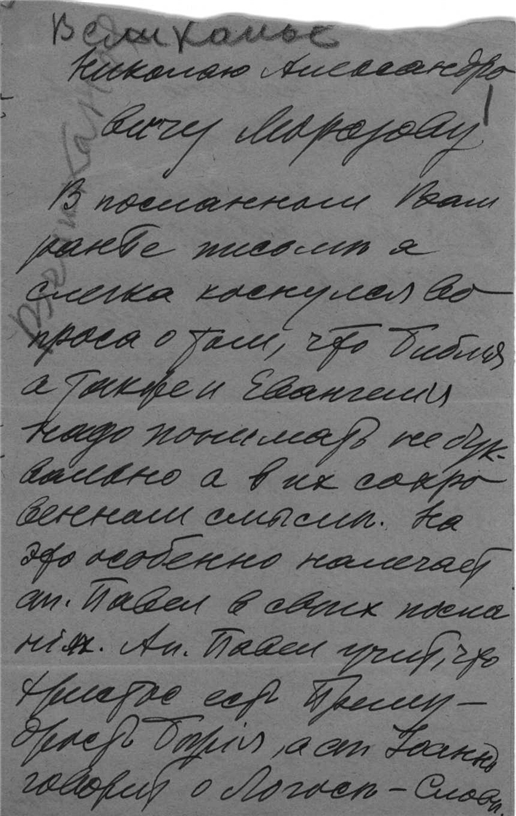 Николаю Александро
вичу Морозову
В посланном Вам
ранѣе письмѣ я
слегка коснулся во
проса о том, что Библия
а также и Евангелия
надо понимать не бук-
вально а в их сокро
венном смыслѣ. На
это особенно намекает
ап. Павел в своих посла
ніях. Ап. Павел учит, что
Христос есть Прему-
дрость Божія, а ап Іоаннъ
говорит о Логосѣ – Словѣ.